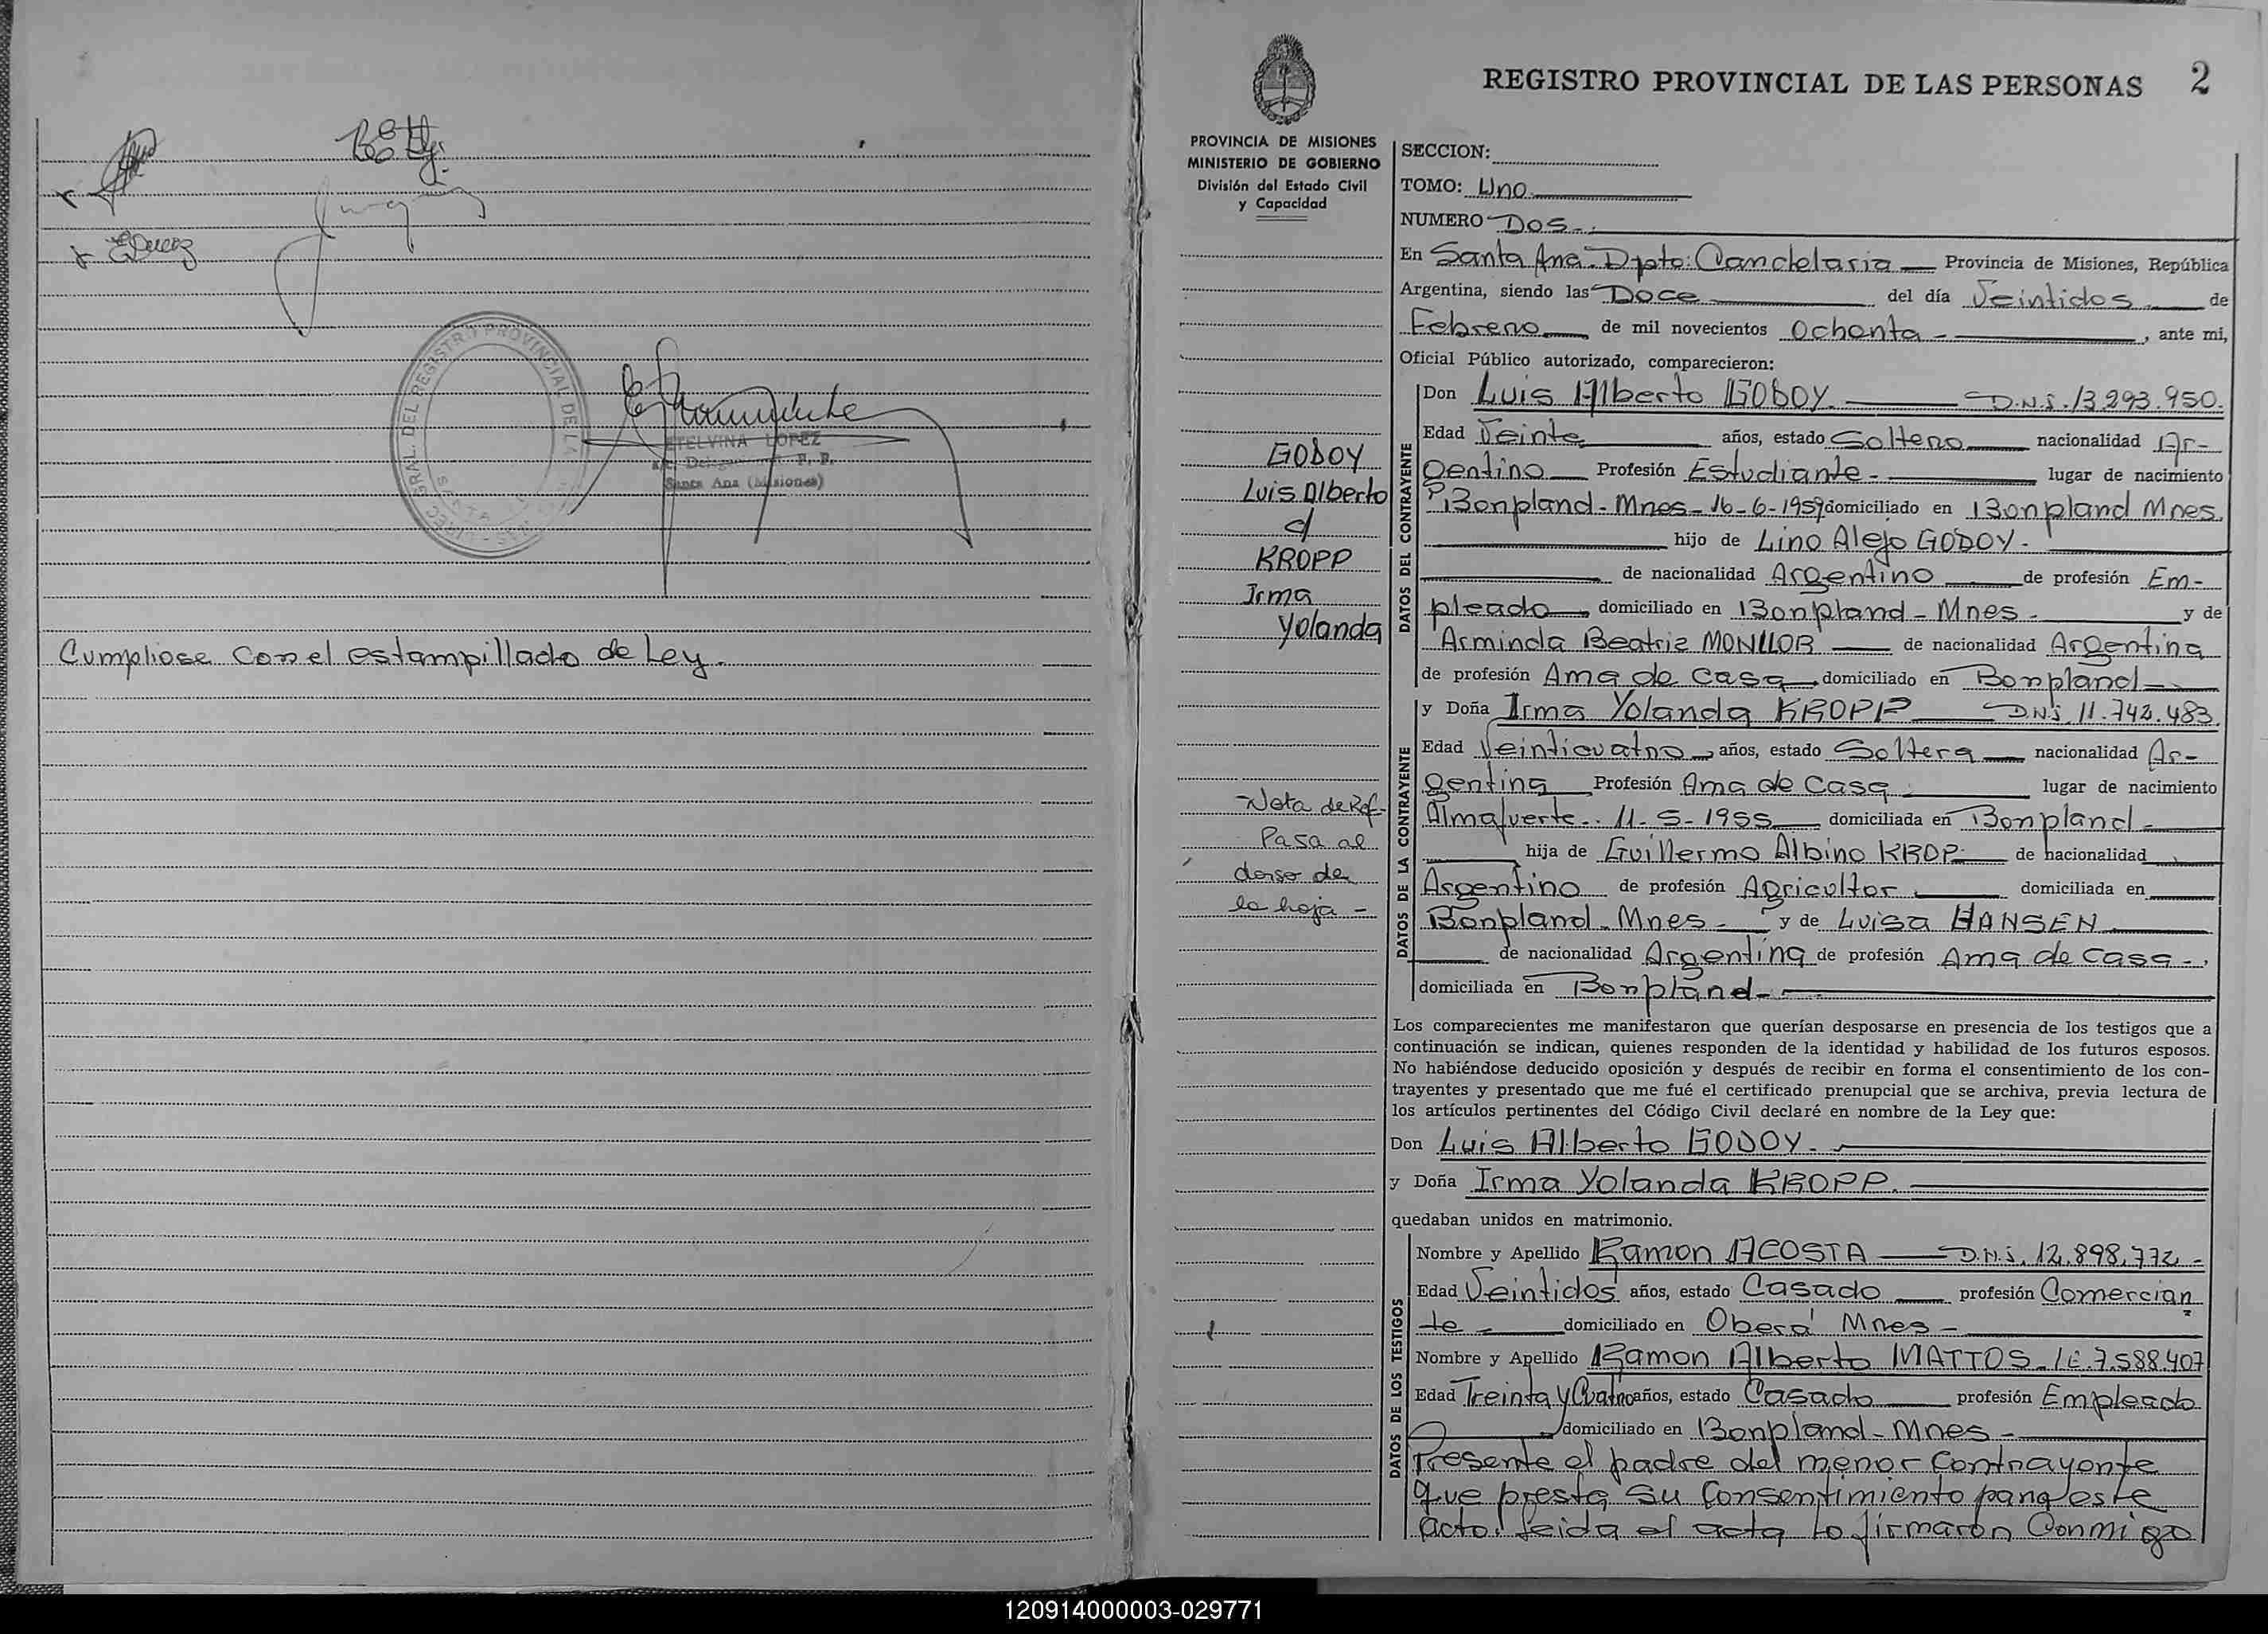 Cumpliose con el estampillado de Ley.
GRAL. DEL REGISTRO PROVINCIAL DE LA
SANTA
ETELVINA LOPEZ
Santa Ana (Misiones)
REGISTRO PROVINCIAL DE LAS PERSONAS 2
PROVINCIA DE MISIONES
MINISTERIO DE GOBIERNO
División del Estado Civil
y Capacidad
GODOY
Luis Alberto
c/
KROPP
Irma
Yolanda
Nota de Ref-
Pasa al
dorso de
la hoja -
SECCION:
TOMO: Uno
NUMERO DOS-.
En Santa Ana-Dpto: Candelaria Provincia de Misiones, República
Argentina, siendo las Doce del día Veintidos de
Febrero de mil novecientos Ochenta - , ante mi,
Oficial Público autorizado, comparecieron:
DATOS DEL CONTRAYENTE
Don Luis Alberto GODOY. D.N.I. 13.293.950.
Edad Veinte años, estado Soltero nacionalidad Ar-
gentino Profesión Estudiante - lugar de nacimiento
Bonpland - Mnes - 16-6-1959 domiciliado en Bonpland Mnes.
hijo de Lino Alejo GODOY -
de nacionalidad Argentino de profesión Em-
pleado domiciliado en Bonpland - Mnes - y de
Arminda Beatriz MONLLOR de nacionalidad Argentina
de profesión Ama de Casa domiciliado en Bonpland -
DATOS DE LA CONTRAYENTE
y Doña Irma Yolanda KROPP D.N.I. 11.742.483.
Edad Veinticuatro años, estado Soltera nacionalidad Ar-
gentina Profesión Ama de Casa lugar de nacimiento
Almafuerte.. 11-5-1955 domiciliada en Bonpland -
hija de Guillermo Albino KROP de nacionalidad
Argentino de profesión Agricultor domiciliada en
Bonpland - Mnes - y de Luisa HANSEN
de nacionalidad Argentina de profesión Ama de Casa -,
domiciliada en Bonpland -
Los comparecientes me manifestaron que querían desposarse en presencia de los testigos que a
continuación se indican, quienes responden de la identidad y habilidad de los futuros esposos.
No habiéndose deducido oposición y después de recibir en forma el consentimiento de los con-
trayentes y presentado que me fué el certificado prenupcial que se archiva, previa lectura de
los artículos pertinentes del Código Civil declaré en nombre de la Ley que:
Don Luis Alberto GODOY.
y Doña Irma Yolanda KROPP.
quedaban unidos en matrimonio.
DATOS DE LOS TESTIGOS
Nombre y Apellido Ramon ACOSTA D.N.I. 12.898.772 -
Edad Veintidos años, estado Casado profesión Comercian
te - domiciliado en Oberá Mnes -
Nombre y Apellido Ramon Alberto MATTOS - L.E. 7.588.407
Edad Treinta y Cuatro años, estado Casado profesión Empleado
domiciliado en Bonpland - Mnes -
Presente el padre del menor Contrayente
que presta su Consentimiento para este
acto. Leida el acta lo firmaron Conmigo
120914000003-029771